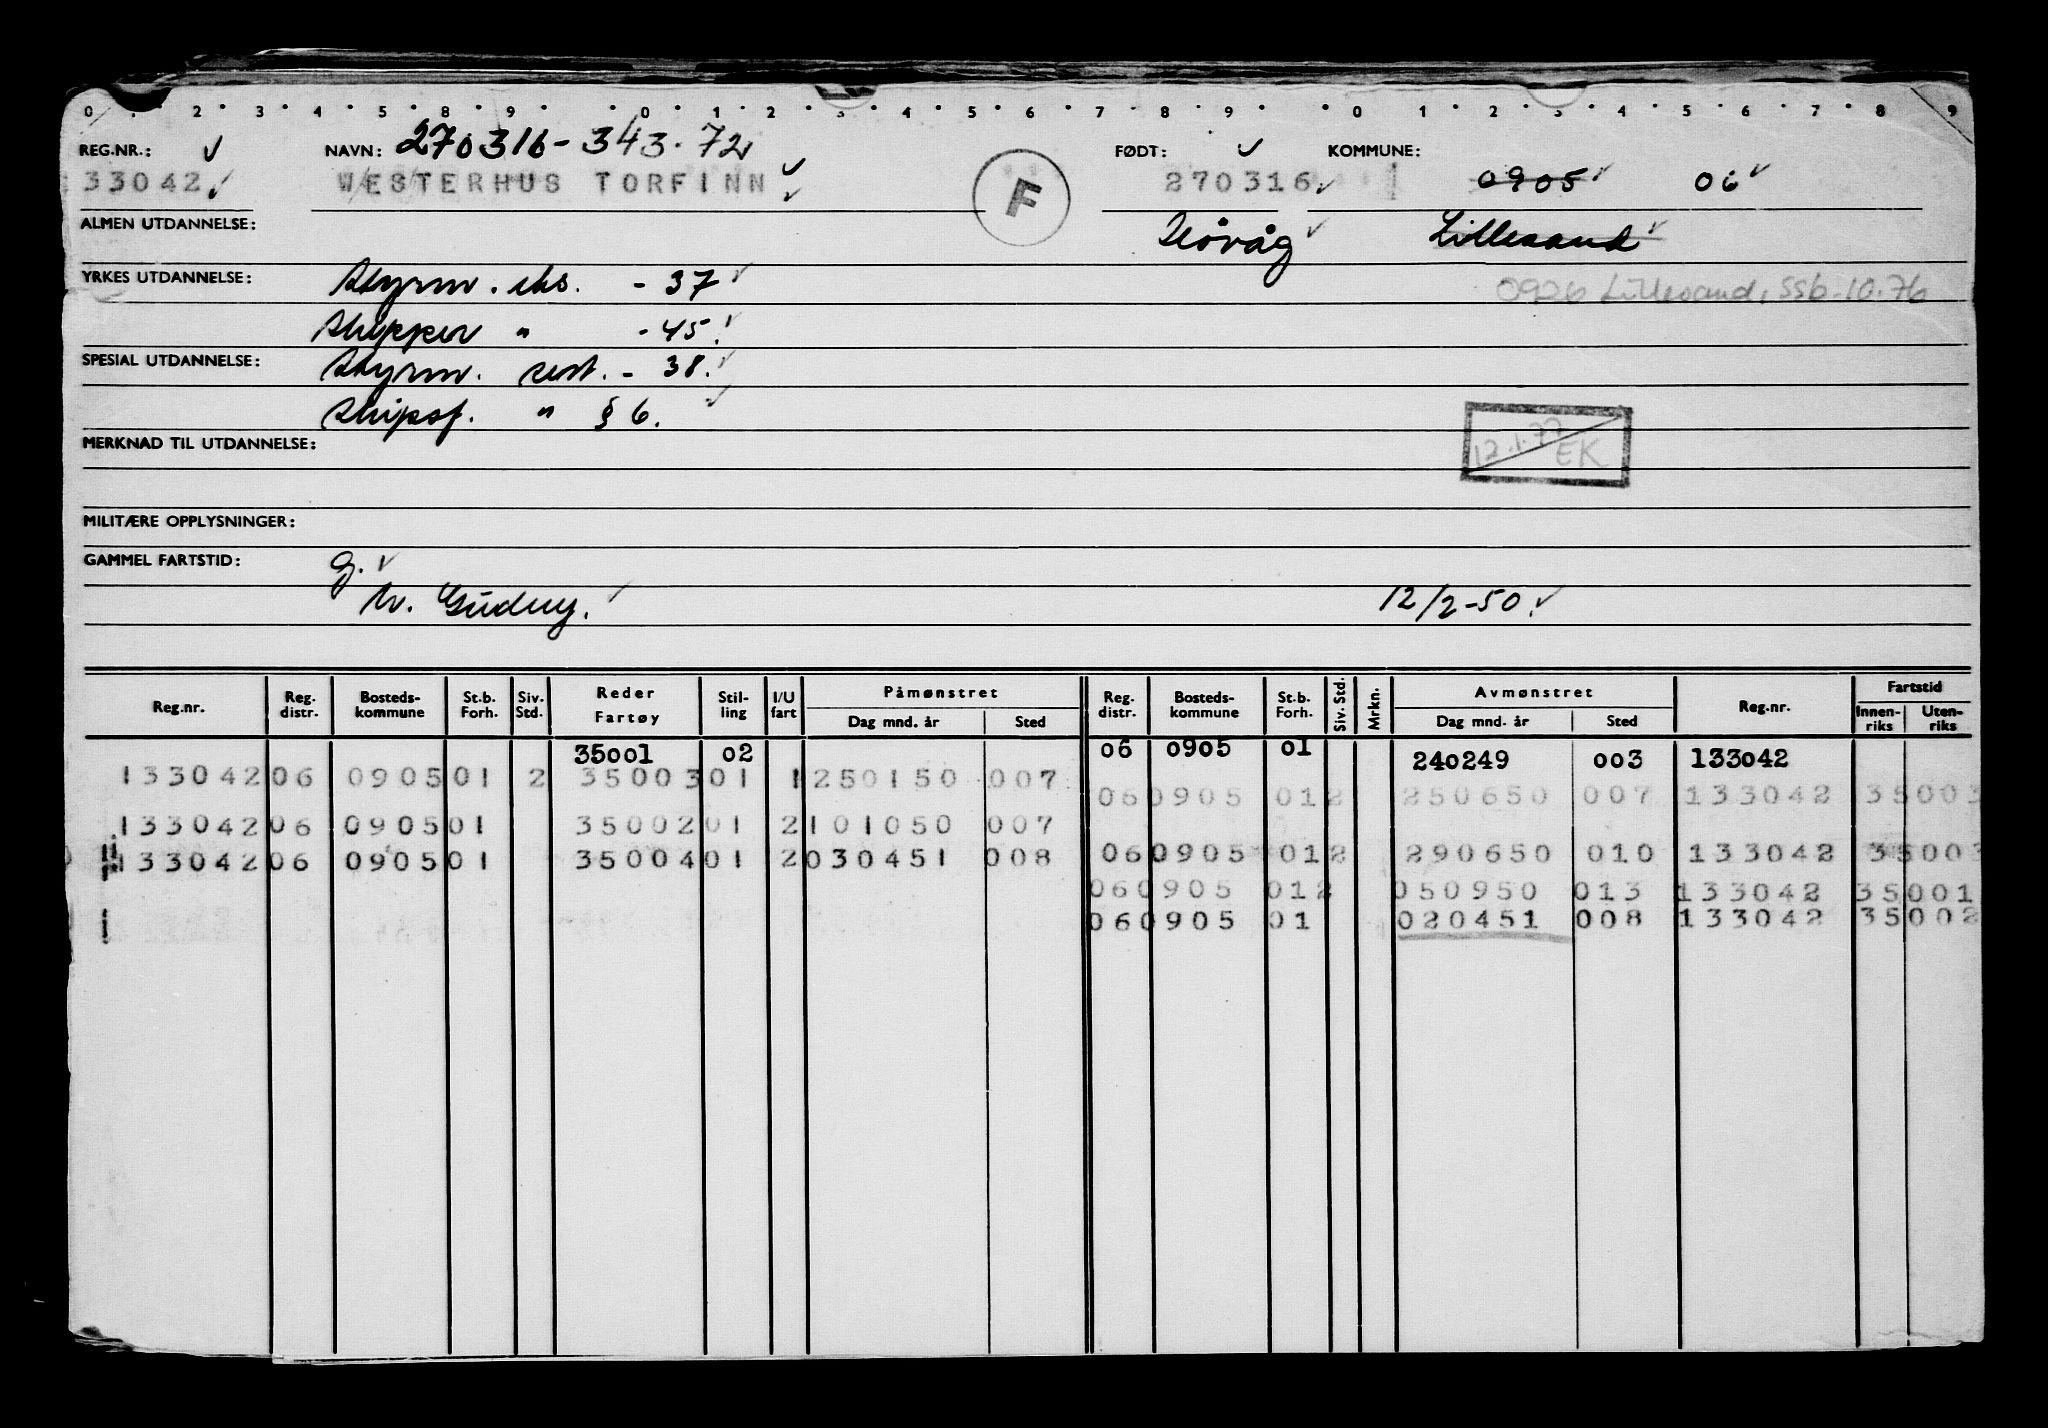 0 1 2 3 4 5 8 9 0 1 2 3 4 5 6 7 8 9 0 1 2 3 4 5 6 7 8 9
REG.NR.: NAVN: 270316-343.72 FØDT: KOMMUNE:
33042 WESTERHUS TORFINN F 270316 0905 06
ALMEN UTDANNELSE: Høvåg Lillesand
YRKES UTDANNELSE: Styrm. eks. - 37 0926 Lillesand, SSb-10.76
Skipper " - 45.
SPESIAL UTDANNELSE: Styrm. sert. - 38.
Skipsf. " § 6.
MERKNAD TIL UTDANNELSE: 12.1.77 EK
MILITÆRE OPPLYSNINGER:
GAMMEL FARTSTID: g.
12/2-50.
Reg.nr. Reg. distr. Bosteds-kommune St.b. Forh. Siv. Std. Reder Fartøy Stil-ling I/U fart Påmønstret Dag mnd. år Sted Reg. distr. Bosteds-kommune St.b. Forh. Siv. Std. Mrkn. Avmønstret Dag mnd. år Sted Reg.nr. Fartstid Innen-riks Uten-riks
35001 02 06 0905 01 240249 003 133042
133042 06 0905 01 2 35003 01 1 250150 007
06 0905 01 2 250650 007 133042 35003
133042 06 0905 01 35002 01 2 101050 007
133042 06 0905 01 35004 01 2 030451 008
06 0905 01 2 290650 010 133042 35003
06 0905 01 2 050950 013 133042 35001
06 0905 01 020451 008 133042 35002